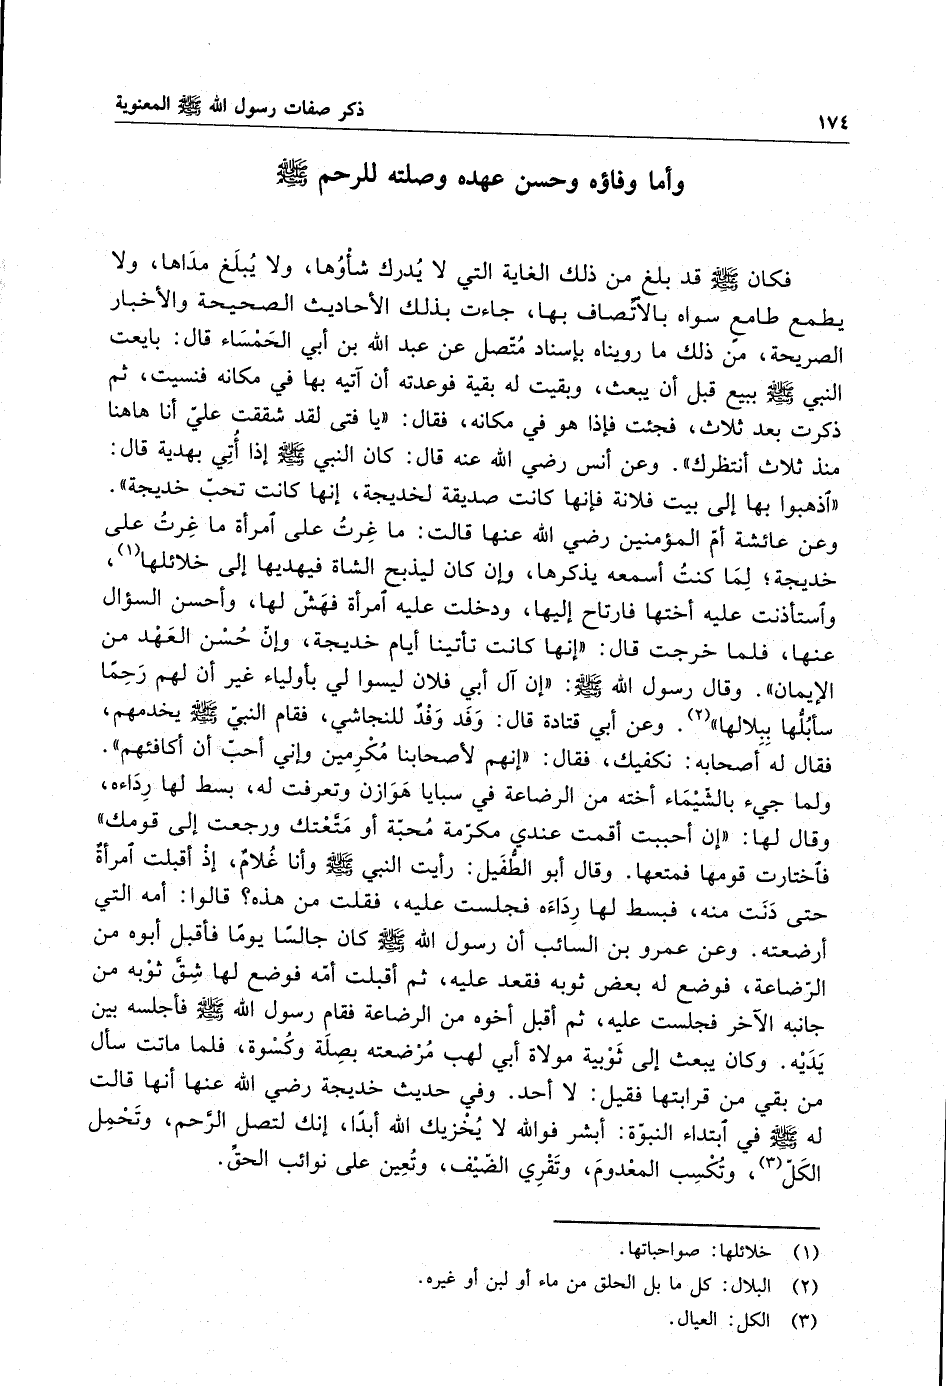 ١٧٤
ذكر صفات رسول الله ﷺ المعنوية
وأما وفاؤه وحسن عهده وصلته للرحم ﷺ
فكان ﷺ قد بلغ من ذلك الغاية التي لا يُدرك شأْوُها، ولا يُبلَغ مدَاها، ولا
يطمع طامع سواه بالاتّصاف بها، جاءت بذلك الأحاديث الصحيحة والأخبار
الصريحة، من ذلك ما رويناه بإسناد مُتّصل عن عبد الله بن أبي الحَمْسَاء قال: بايعت
النبي ﷺ ببيع قبل أن يبعث، وبقيت له بقية فوعدته أن آتيه بها في مكانه فنسيت، ثم
ذكرت بعد ثلاث، فجئت فإذا هو في مكانه، فقال: «يا فتى لقد شققت عليّ أنا هاهنا
منذ ثلاث أنتظرك». وعن أنس رضي الله عنه قال: كان النبي ﷺ إذا أُتِي بهدية قال:
«ٱذهبوا بها إلى بيت فلانة فإنها كانت صديقة لخديجة، إنها كانت تحبّ خديجة».
وعن عائشة أمّ المؤمنين رضي الله عنها قالت: ما غِرتُ على ٱمرأة ما غِرتُ على
خديجة؛ لِمَا كنتُ أسمعه يذكرها، وإن كان ليذبح الشاة فيهديها إلى خلائلها(١)،
وٱستأذنت عليه أختها فارتاح إليها، ودخلت عليه ٱمرأة فهَشّ لها، وأحسن السؤال
عنها، فلما خرجت قال: «إنها كانت تأتينا أيام خديجة، وإنّ حُسْن العَهْد من
الإيمان». وقال رسول الله ﷺ: «إن آل أبي فلان ليسوا لي بأولياء غير أن لهم رَحِمًا
سأبُلُّها بِبِلالها»(٢). وعن أبي قتادة قال: وَفَد وَفْدٌ للنجاشي، فقام النبيّ ﷺ يخدمهم،
فقال له أصحابه: نكفيك، فقال: «إنهم لأصحابنا مُكْرِمين وإني أحبّ أن أكافئهم».
ولما جيء بالشَّيْمَاء أخته من الرضاعة في سبايا هَوَازن وتعرفت له، بسط لها رِدَاءه،
وقال لها: «إن أحببت أقمت عندي مكرّمة مُحبّة أو مَتَّعْتك ورجعت إلى قومك»
فٱختارت قومها فمتعها. وقال أبو الطُّفَيل: رأيت النبي ﷺ وأنا غُلامٌ، إذْ أقبلت ٱمرأةٌ
حتى دَنَت منه، فبسط لها رِدَاءَه فجلست عليه، فقلت من هذه؟ قالوا: أمه التي
أرضعته. وعن عمرو بن السائب أن رسول الله ﷺ كان جالسًا يومًا فأقبل أبوه من
الرّضاعة، فوضع له بعض ثوبه فقعد عليه، ثم أقبلت أمّه فوضع لها شِقَّ ثوْبه من
جانبه الآخر فجلست عليه، ثم أقبل أخوه من الرضاعة فقام رسول الله ﷺ فأجلسه بين
يَدَيْه. وكان يبعث إلى ثَوْبية مولاة أبي لهب مُرْضعته بصِلَة وكُسْوة، فلما ماتت سأل
من بقي من قرابتها فقيل: لا أحد. وفي حديث خديجة رضي الله عنها أنها قالت
له ﷺ في ٱبتداء النبوّة: أبشر فوالله لا يُخْزيك الله أبدًا، إنك لتصل الرَّحم، وتَحْمِل
الكَلّ(٣)، وتُكْسِب المعْدومَ، وتَقْرِي الضّيْف، وتُعِين على نوائب الحقِّ.
(١) خلائلها: صواحباتها.
(٢) البلال: كل ما بل الحلق من ماء أو لبن أو غيره.
(٣) الكل: العيال.